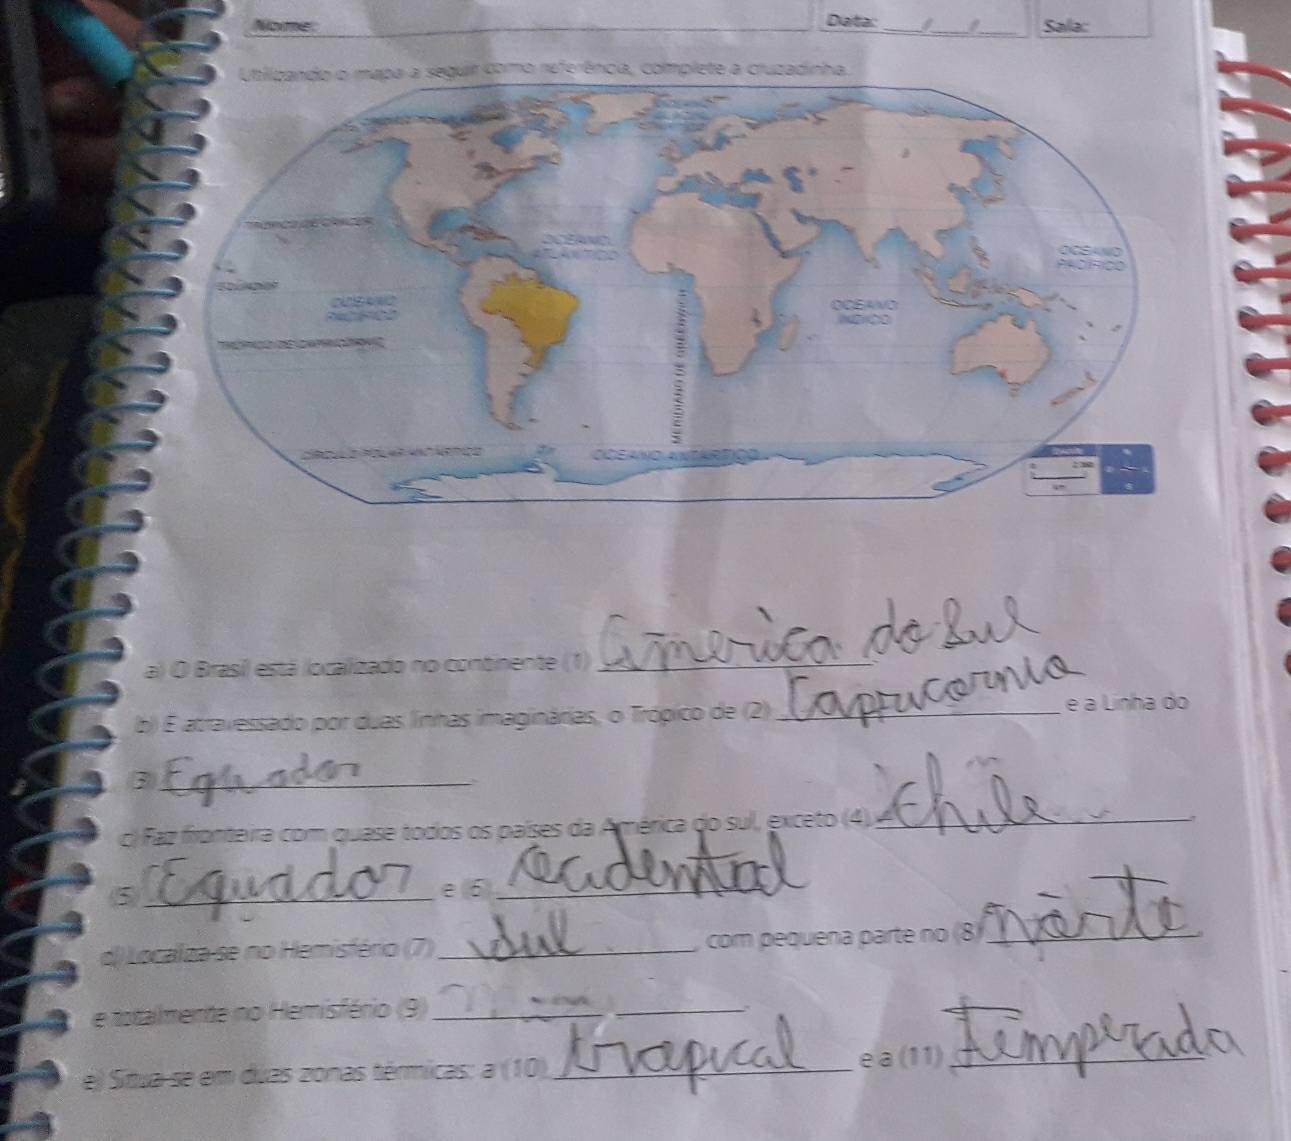 Nome: Data: __/__/__ Sala:
Utilizando o mapa a seguir como referência, complete a cruzadinha.
TRÓPICO DE CÂNCER
OCEANO
ATLÂNTICO
OCEANO
PACÍFICO
EQUADOR
OCEANO
PACÍFICO
OCEANO
ÍNDICO
TRÓPICO DE CAPRICÓRNIO
MERIDIANO DE GREENWICH
CÍRCULO POLAR ANTÁRTICO
OCEANO ANTÁRTICO
a) O Brasil está localizado no continente (1) America do Sul
b) É atravessado por duas linhas imaginárias, o Trópico de (2) Capricornia e a Linha do
(3) Equador
c) Faz fronteira com quase todos os países da América do sul, exceto (4) Chile,
(5) Equador e (6)
d) Localiza-se no Hemisfério (7) Sul, com pequena parte no (8) norte
e totalmente no Hemisfério (9)
e) Situa-se em duas zonas térmicas: a (10) tropical e a (11) temperada